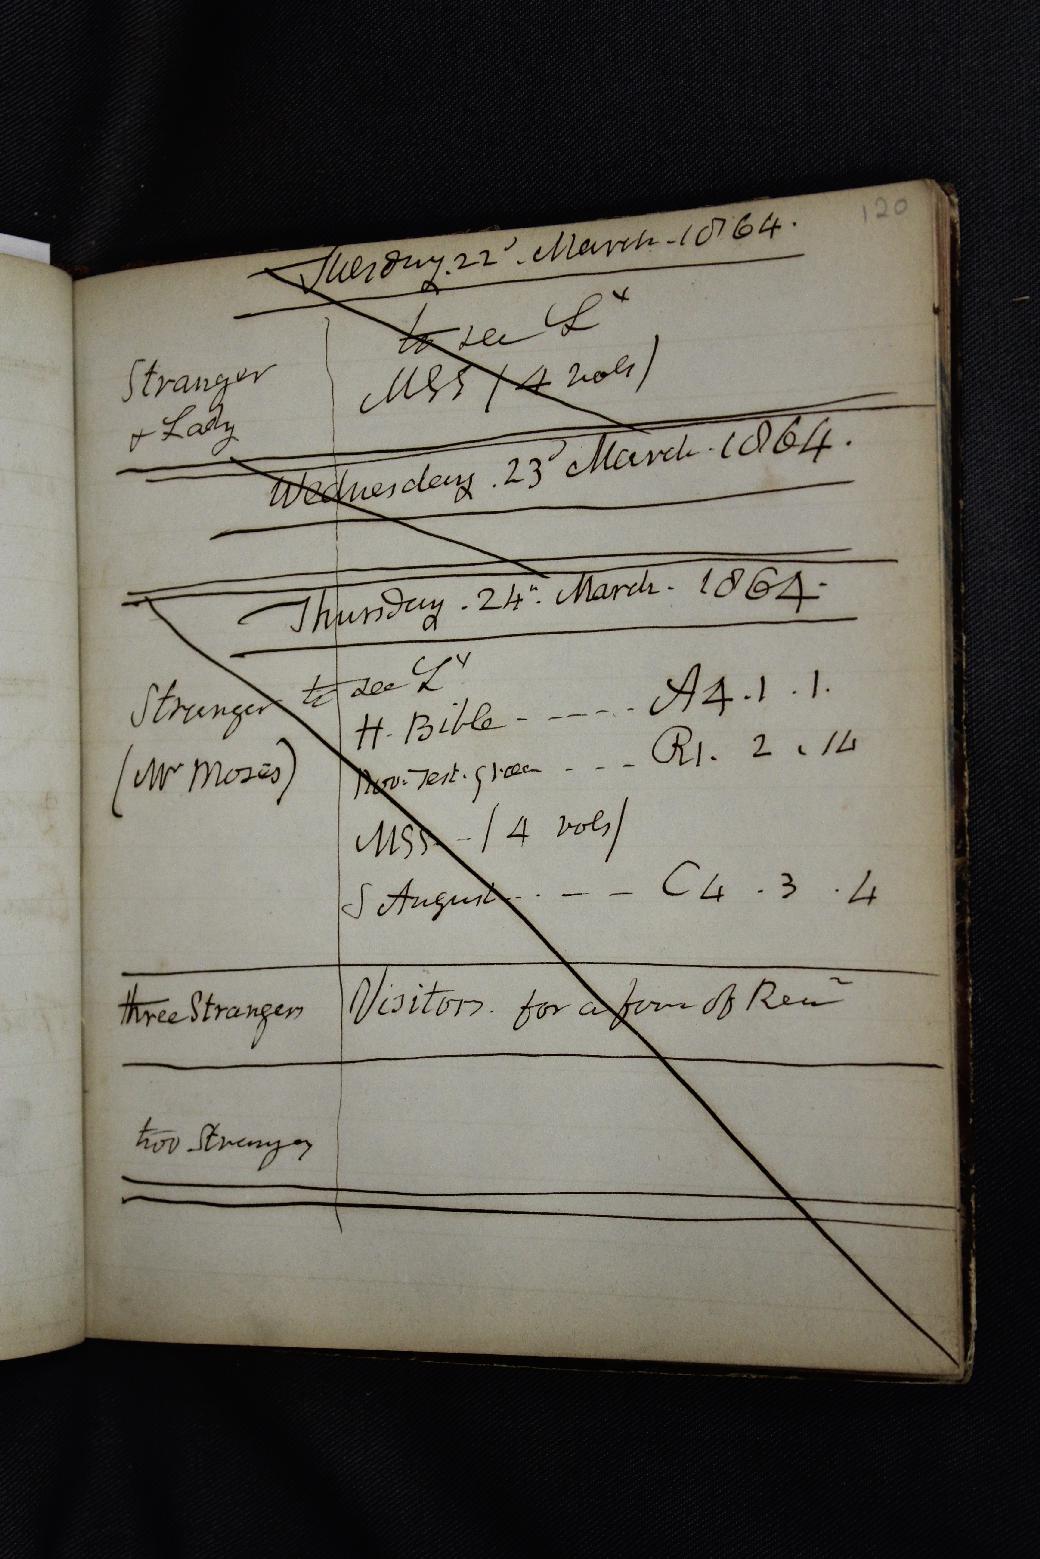 120
Tuesday. 22d. March. 1864.
to see Lx
Stranger MSS (4 vols)
& Lady
Wednesday. 23d March. 1864.
Thursday. 24th. March. 1864.
Stranger to see Ly
H. Bible - - - - - A4. 1. 1.
(Mr Moses) Nov. Test. green - - - R1. 2. 14
MSS - (4 vols)
S August - - - - C4. 3. 4
three Strangers Visitors. for a form of
two Stranger